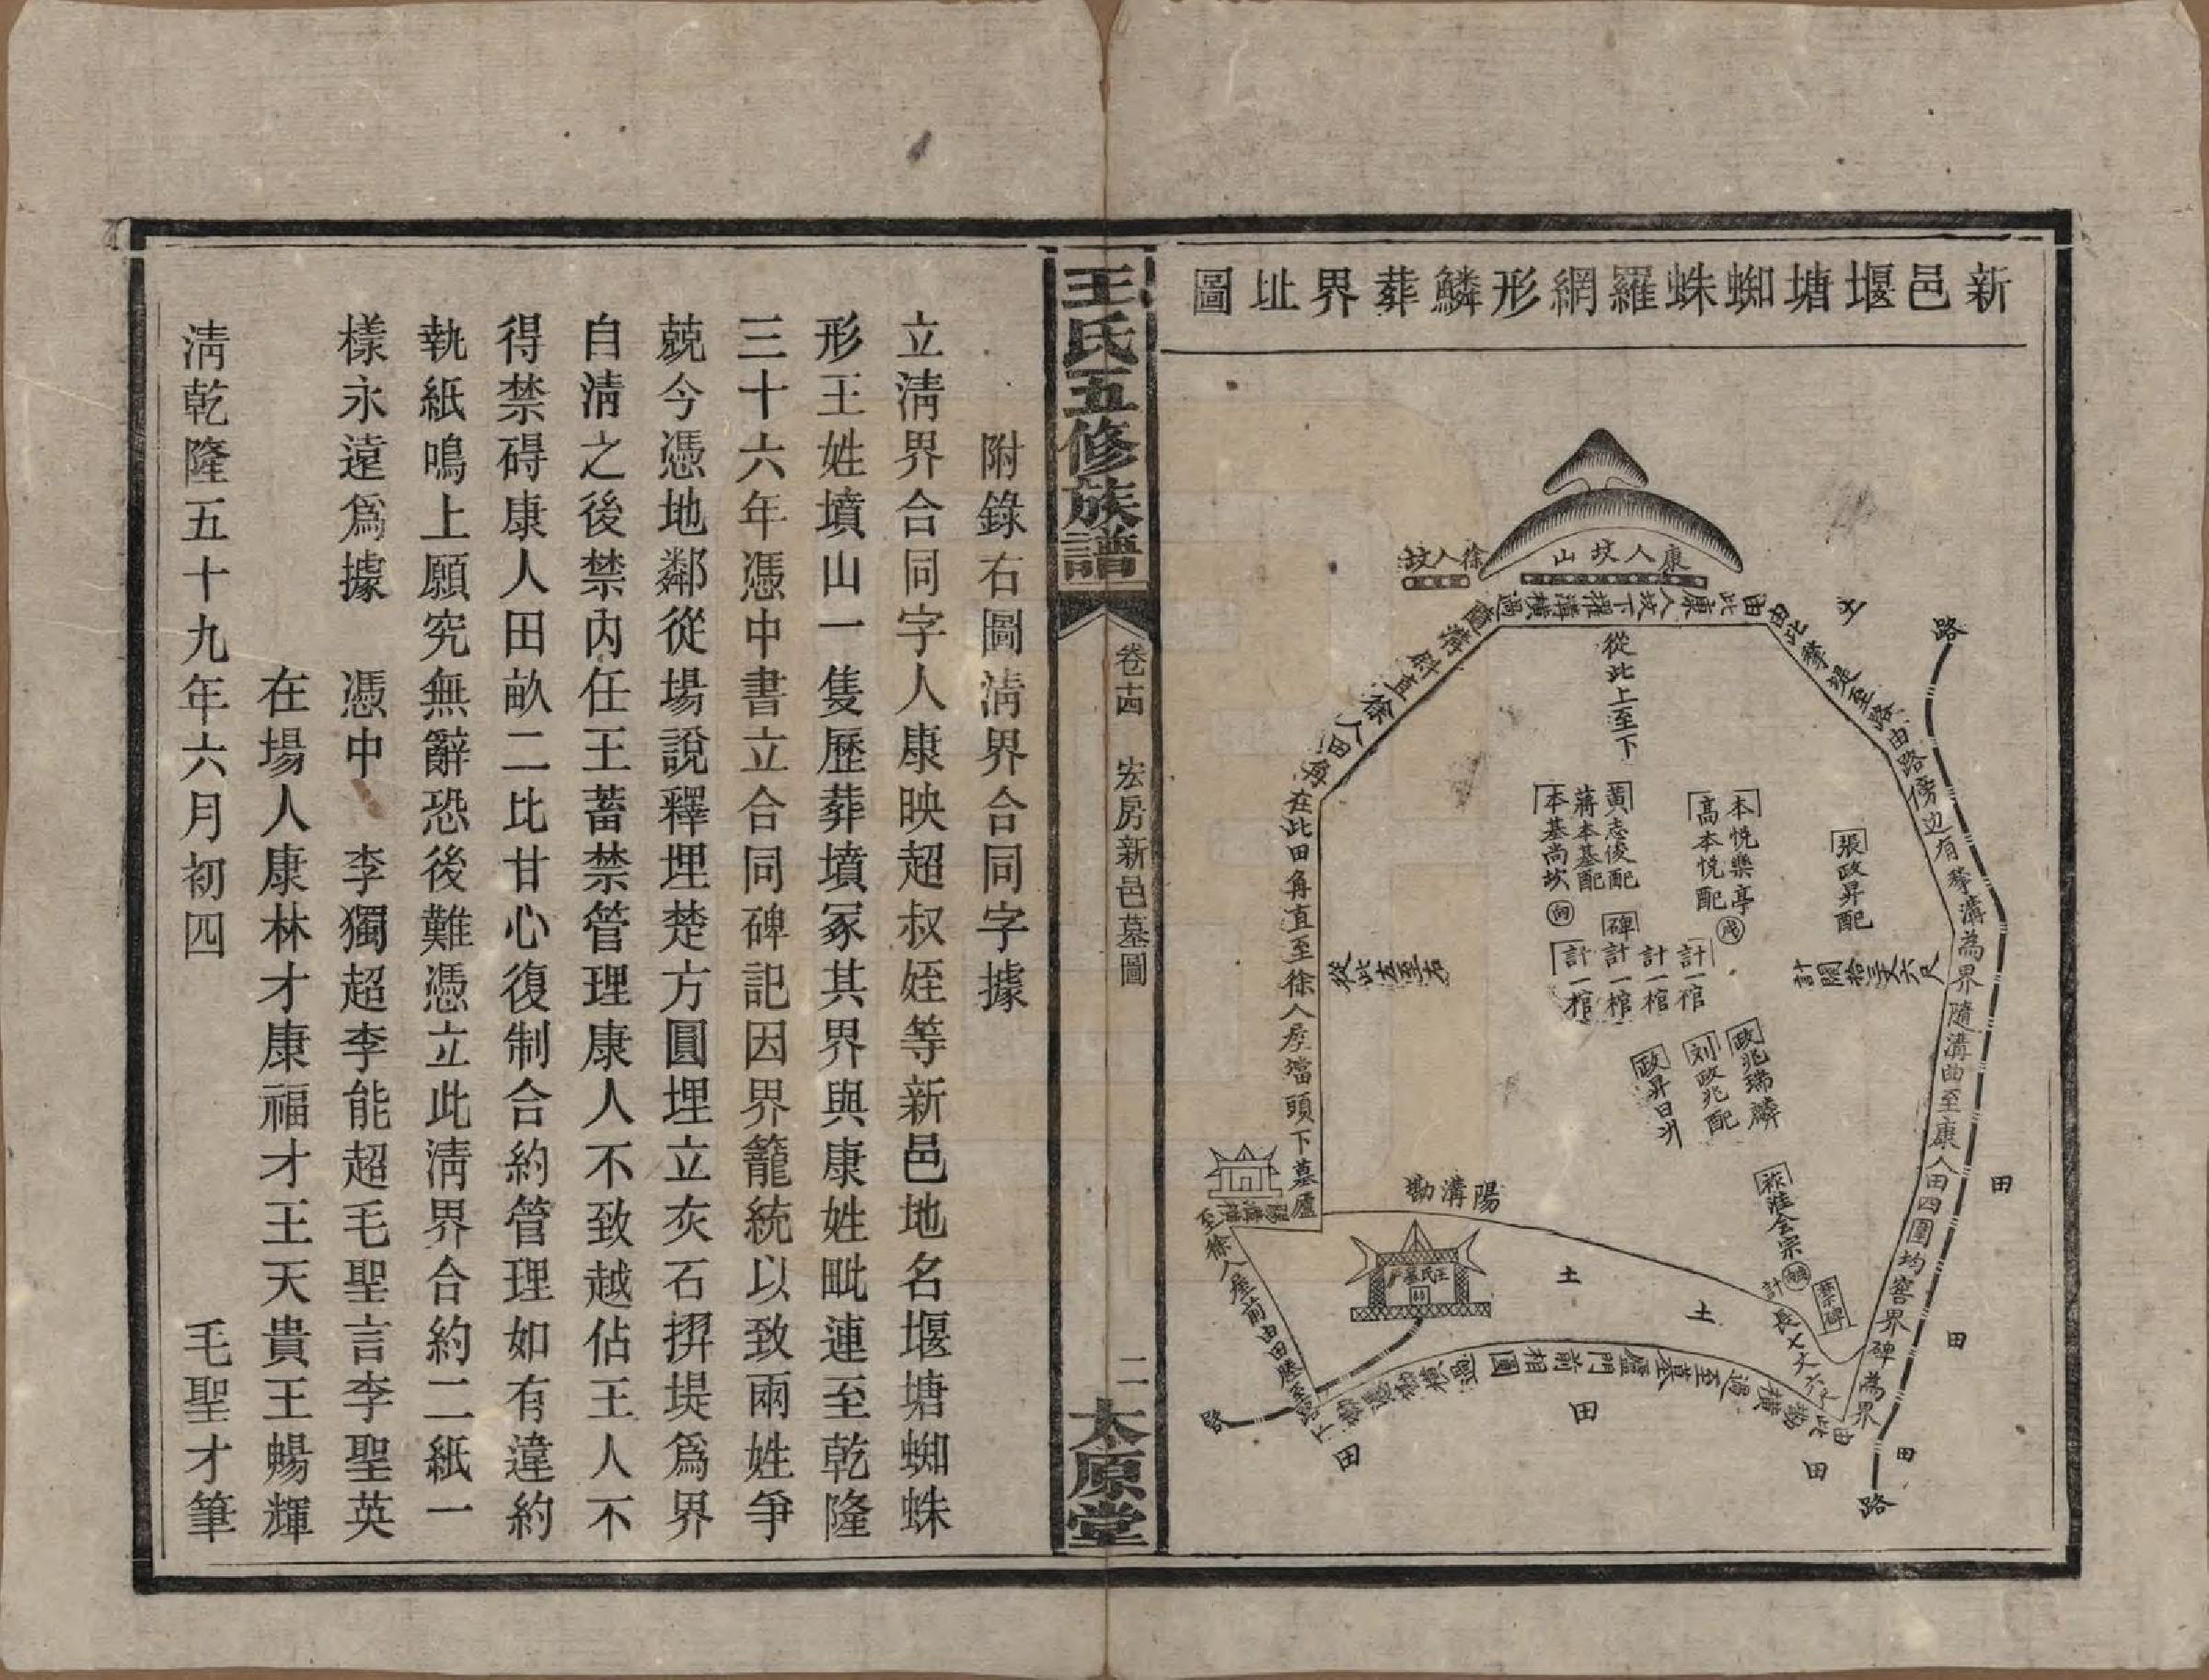 新邑堰塘蜘蛛羅網形鱗葬界址圖
康人坟山
徐人坟
由此康人坟下摧溝橫過
從此上至下
路
在此田角直至徐人屋壋頭下墓廬
由路傍边有拳溝為界隨溝曲至康人田四圍均窖界碑為界
張政昇配
本悅樂亭
高本悅配
黃志俊配
蔣本基配
本基尚坎
向
碑
計一棺
計一棺
計一棺
計一棺
從此左至右
計闊拾三丈六尺
政兆瑞麟
刘政兆配
政昇日洲
禁碑
計長七丈六尺
陽溝勘
王氏墓廬
至徐人屋前由田塍至路
土
土
田
田
田
田
田
田
路
路
王氏五修族譜
卷十四 宏房新邑墓圖
二
太原堂
附錄右圖清界合同字據
立清界合同字人康映超叔姪等新邑地名堰塘蜘蛛
形王姓墳山一隻歷葬墳冢其界與康姓毗連至乾隆
三十六年憑中書立合同碑記因界籠統以致兩姓爭
兢今憑地鄰從場說釋埋楚方圓埋立灰石捹堤為界
自清之後禁內任王蓄禁管理康人不致越佔王人不
得禁碍康人田畝二比甘心復制合約管理如有違約
執紙鳴上願究無辭恐後難憑立此清界合約二紙一
樣永遠為據 憑中 李獨超李能超毛聖言李聖英
在場人康林才康福才王天貴王暢輝
清乾隆五十九年六月初四 毛聖才筆